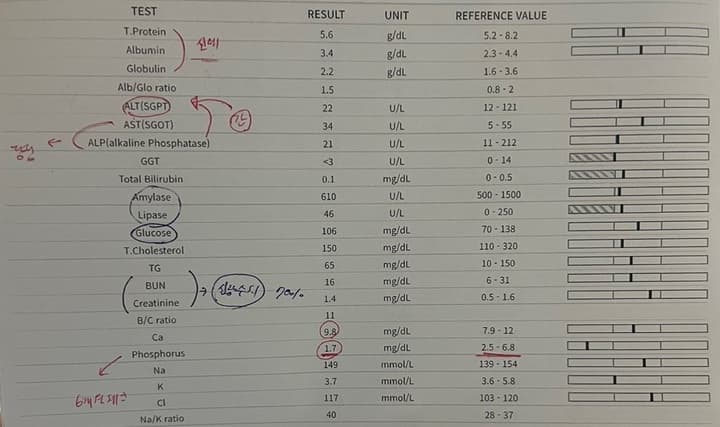 TEST RESULT UNIT REFERENCE VALUE
T.Protein 5.6 g/dL 5.2 - 8.2
Albumin 3.4 g/dL 2.3 - 4.4
Globulin 2.2 g/dL 1.6 - 3.6
Alb/Glo ratio 1.5 0.8 - 2
ALT(SGPT) 22 U/L 12 - 121
간
AST(SGOT) 34 U/L 5 - 55
ALP(alkaline Phosphatase) 21 U/L 11 - 212
GGT <3 U/L 0 - 14
Total Bilirubin 0.1 mg/dL 0 - 0.5
Amylase 610 U/L 500 - 1500
Lipase 46 U/L 0 - 250
Glucose 106 mg/dL 70 - 138
T.Cholesterol 150 mg/dL 110 - 320
TG 65 mg/dL 10 - 150
BUN 16 mg/dL 6 - 31
70%
Creatinine 1.4 mg/dL 0.5 - 1.6
B/C ratio 11
Ca 9.8 mg/dL 7.9 - 12
Phosphorus 1.7 mg/dL 2.5 - 6.8
Na 149 mmol/L 139 - 154
K 3.7 mmol/L 3.6 - 5.8
Cl 117 mmol/L 103 - 120
Na/K ratio 40 28 - 37